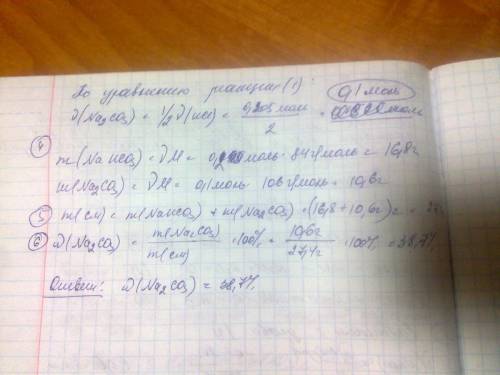 По уравнению реакции (1):
ν(Na₂CO₃) = 1/2 ν(HCl) = моль / 2 = моль
0,1 моль
④
m(NaHCO₃) = νM = моль · 84 г/моль = 16,8 г
m(Na₂CO₃) = νM = 0,1 моль · 106 г/моль = 10,6 г
⑤ m(см) = m(NaHCO₃) + m(Na₂CO₃) = (16,8 + 10,6) г =
⑥ ω(Na₂CO₃) = m(Na₂CO₃) / m(см) · 100% = 10,6 г / 27,4 г · 100% = 38,7%
Ответ: ω(Na₂CO₃) = 38,7%